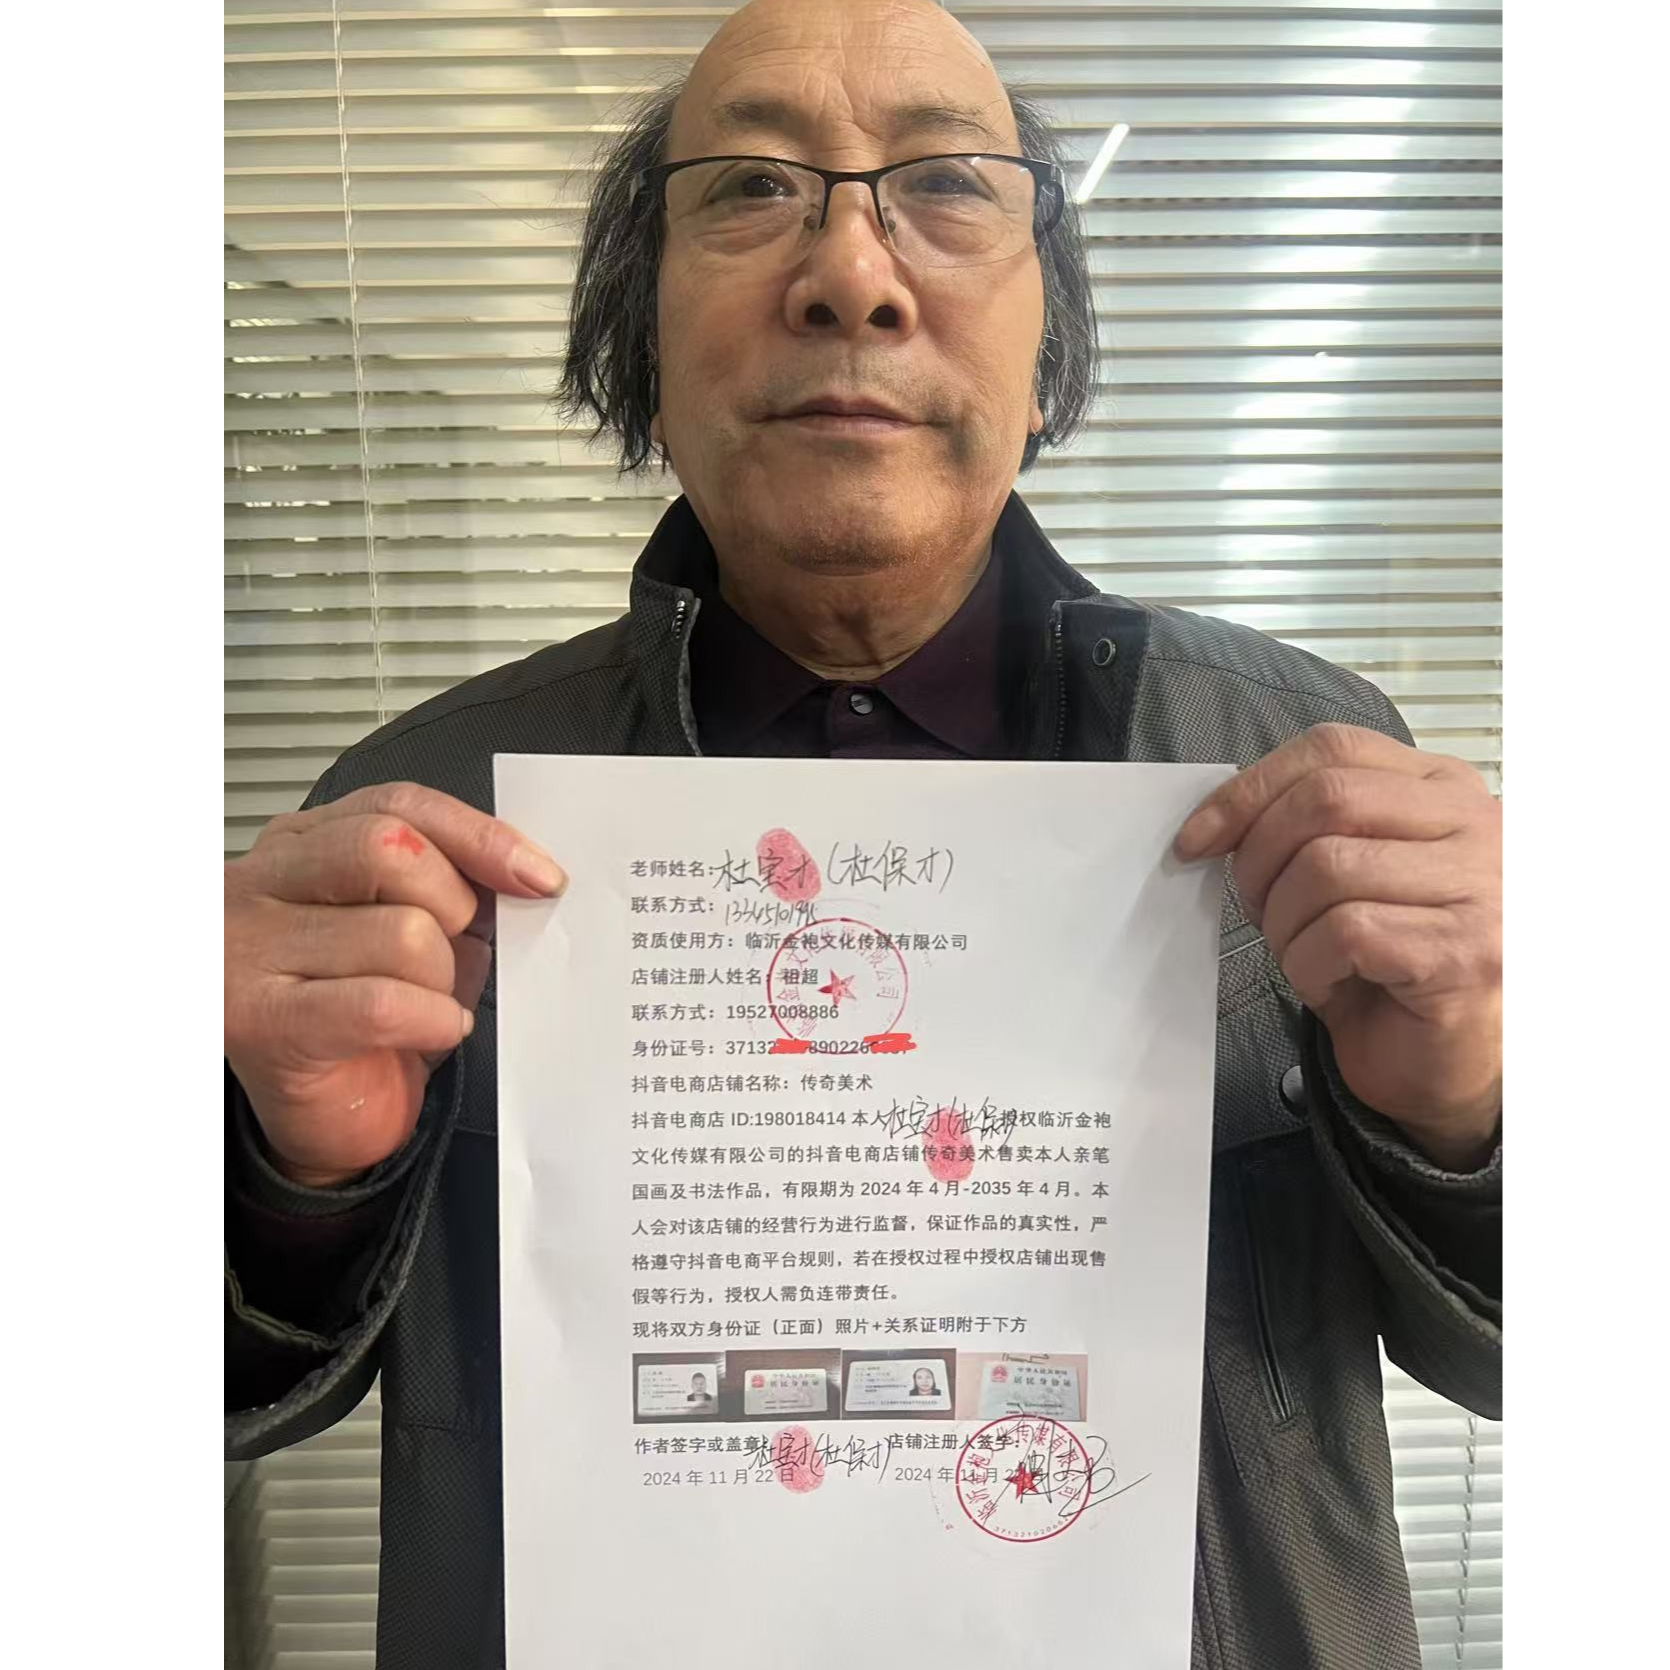 老师姓名：杜宝才（杜保才）
联系方式：
资质使用方：临沂金袍文化传媒有限公司
店铺注册人姓名：祖超
联系方式：19527008886
身份证号：37132 890226
抖音电商店铺名称：传奇美术
抖音电商店 ID:198018414 本人杜宝才（杜保才）授权临沂金袍
文化传媒有限公司的抖音电商店铺传奇美术售卖本人亲笔
国画及书法作品，有限期为 2024 年 4 月-2035 年 4 月。本
人会对该店铺的经营行为进行监督，保证作品的真实性，严
格遵守抖音电商平台规则，若在授权过程中授权店铺出现售
假等行为，授权人需负连带责任。
现将双方身份证（正面）照片+关系证明附于下方
中华人民共和国
居民身份证
中华人民共和国
居民身份证
作者签字或盖章：杜宝才（杜保才） 店铺注册人签字：
2024 年 11 月 22 日 2024 年 11 月 22 日